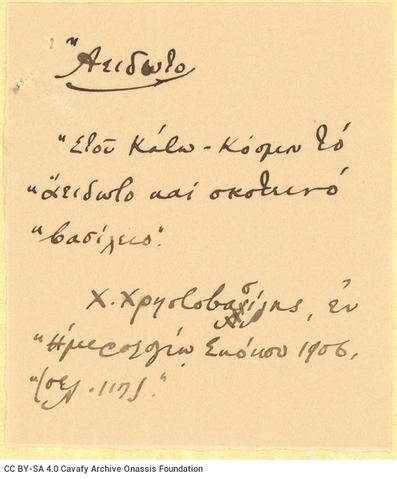 "Ἀειδωτο
"Στοῦ Κάτω-Κόσμου τό
"ἄειδωτο καί σκοτεινό
"βασίλειο".
Χ. Χρηστοβασίλης, ἐν
"Ἡμερολογίῳ Σκόκου 1906,
"(σελ.
CC BY-SA 4.0 Cavafy Archive Onassis Foundation